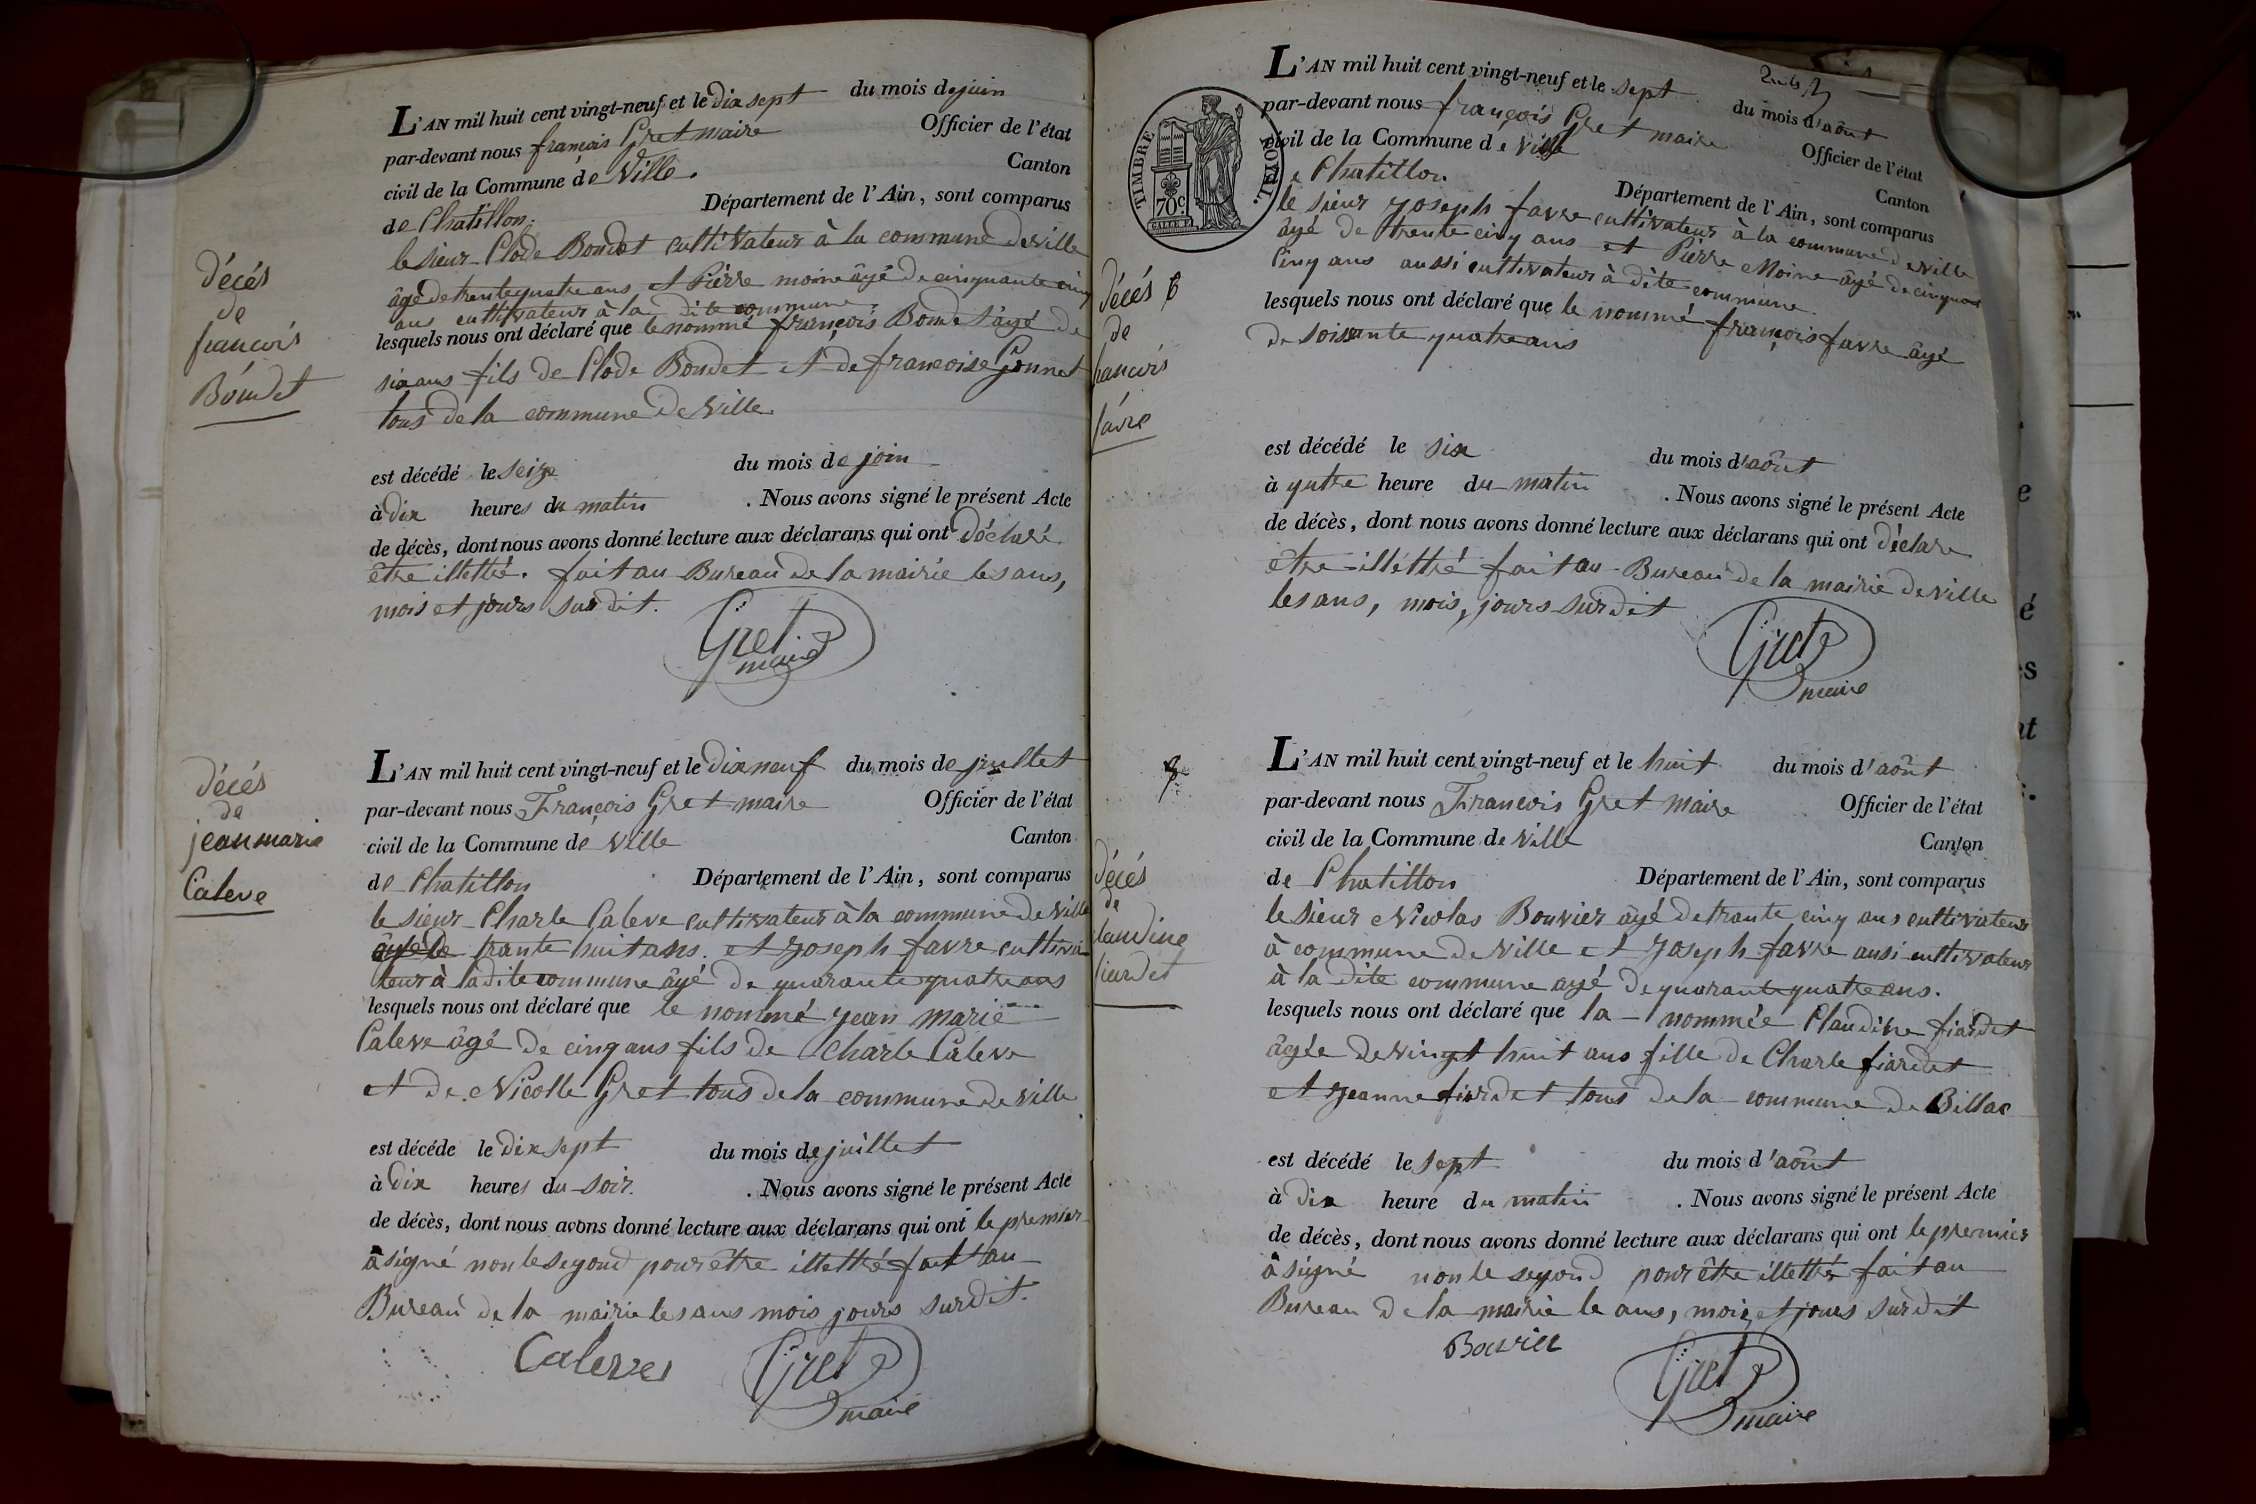 L'AN mil huit cent vingt-neuf et le dix sept du mois de juin
par-devant nous françois Gret maire Officier de l'état
civil de la Commune de Ville. Canton
de Chatillon. Département de l'Ain, sont comparus
le sieur Clode Boudet cultivateur à la commune de ville
âgé de trente quatre ans et Pierre moine âgé de cinquante cinq
ans cultivateur à la dite commune.
lesquels nous ont déclaré que le nommé françois Boudet âgé de
six ans fils de Clode Boudet et de francoise Gonnet
tous de la commune de Ville
décés
de
francois
Boudet
est décédé le seize du mois de join
à dix heures du matin . Nous avons signé le présent Acte
de décès, dont nous avons donné lecture aux déclarans qui ont déclaré
être illettré. fait au Bureau de la mairie les ans,
mois et jours sus dit.
Gret
maire
L'AN mil huit cent vingt-neuf et le dix neuf du mois de juillet
par-devant nous François Gret maire Officier de l'état
civil de la Commune de Ville Canton
de Chatillon Département de l'Ain, sont comparus
le sieur Charle Caleve cultivateur à la commune de ville
âgé de trante huit ans. et Joseph favre cultiva
teur à la dite commune âgé de quarante quatre ans
lesquels nous ont déclaré que le nommé jean marie
Caleve âgé de cinq ans fils de Charle Caleve
et de Nicolle Gret tous de la commune de ville
décés
de
jean marie
Caleve
est décéde le dix sept du mois de juillet
à dix heures du soir. . Nous avons signé le présent Acte
de décès, dont nous avons donné lecture aux déclarans qui ont le premier
à signé non le segond pour être illettré fait au
Bureau de la mairie les ans mois jours surdit.
Caleves
Gret
maire
TIMBRE ROYAL.
70c
L'AN mil huit cent vingt-neuf et le sept du mois d'août
par-devant nous françois Gret maire Officier de l'état
civil de la Commune de Ville Canton
de Chatillon Département de l'Ain, sont comparus
le sieur Joseph favre cultivateur à la commune de ville
âgé de trente cinq ans et Pierre Moine âgé de cinquante
cinq ans aussi cultivateur à dite commune
lesquels nous ont déclaré que le nommé françois favre âgé
de soixante quatre ans
décés
de
francois
favre
est décédé le six du mois d'août
à qutre heure du matin . Nous avons signé le présent Acte
de décès, dont nous avons donné lecture aux déclarans qui ont déclare
etre illéttré fait au Bureau de la mairie de ville
les ans, mois, jours surdit
Gret
maire
L'AN mil huit cent vingt-neuf et le huit du mois d'août
par-devant nous François Gret Maire Officier de l'état
civil de la Commune de Ville Canton
de Chatillon Département de l'Ain, sont comparus
le sieur Nicolas Bouvier âyé de trante cinq ans cultivateur
à commune de Ville et Joseph favre ausi cultivateur
à la dite commune ayé de quarante quatre ans.
lesquels nous ont déclaré que la nommée Claudine fiardet
âgée de vingt huit ans fille de Charle fiardet
et Jeanne fiardet tous de la commune de Billac
décés
de
laudine
fiardet
est décédé le sept du mois d'août
à dix heure du matin . Nous avons signé le présent Acte
de décès, dont nous avons donné lecture aux déclarans qui ont le premier
à signé non le segond pour être illettré fait au
Bureau de la mairie le ans, mois, et jours surdit
Bouvier
Gret
maire